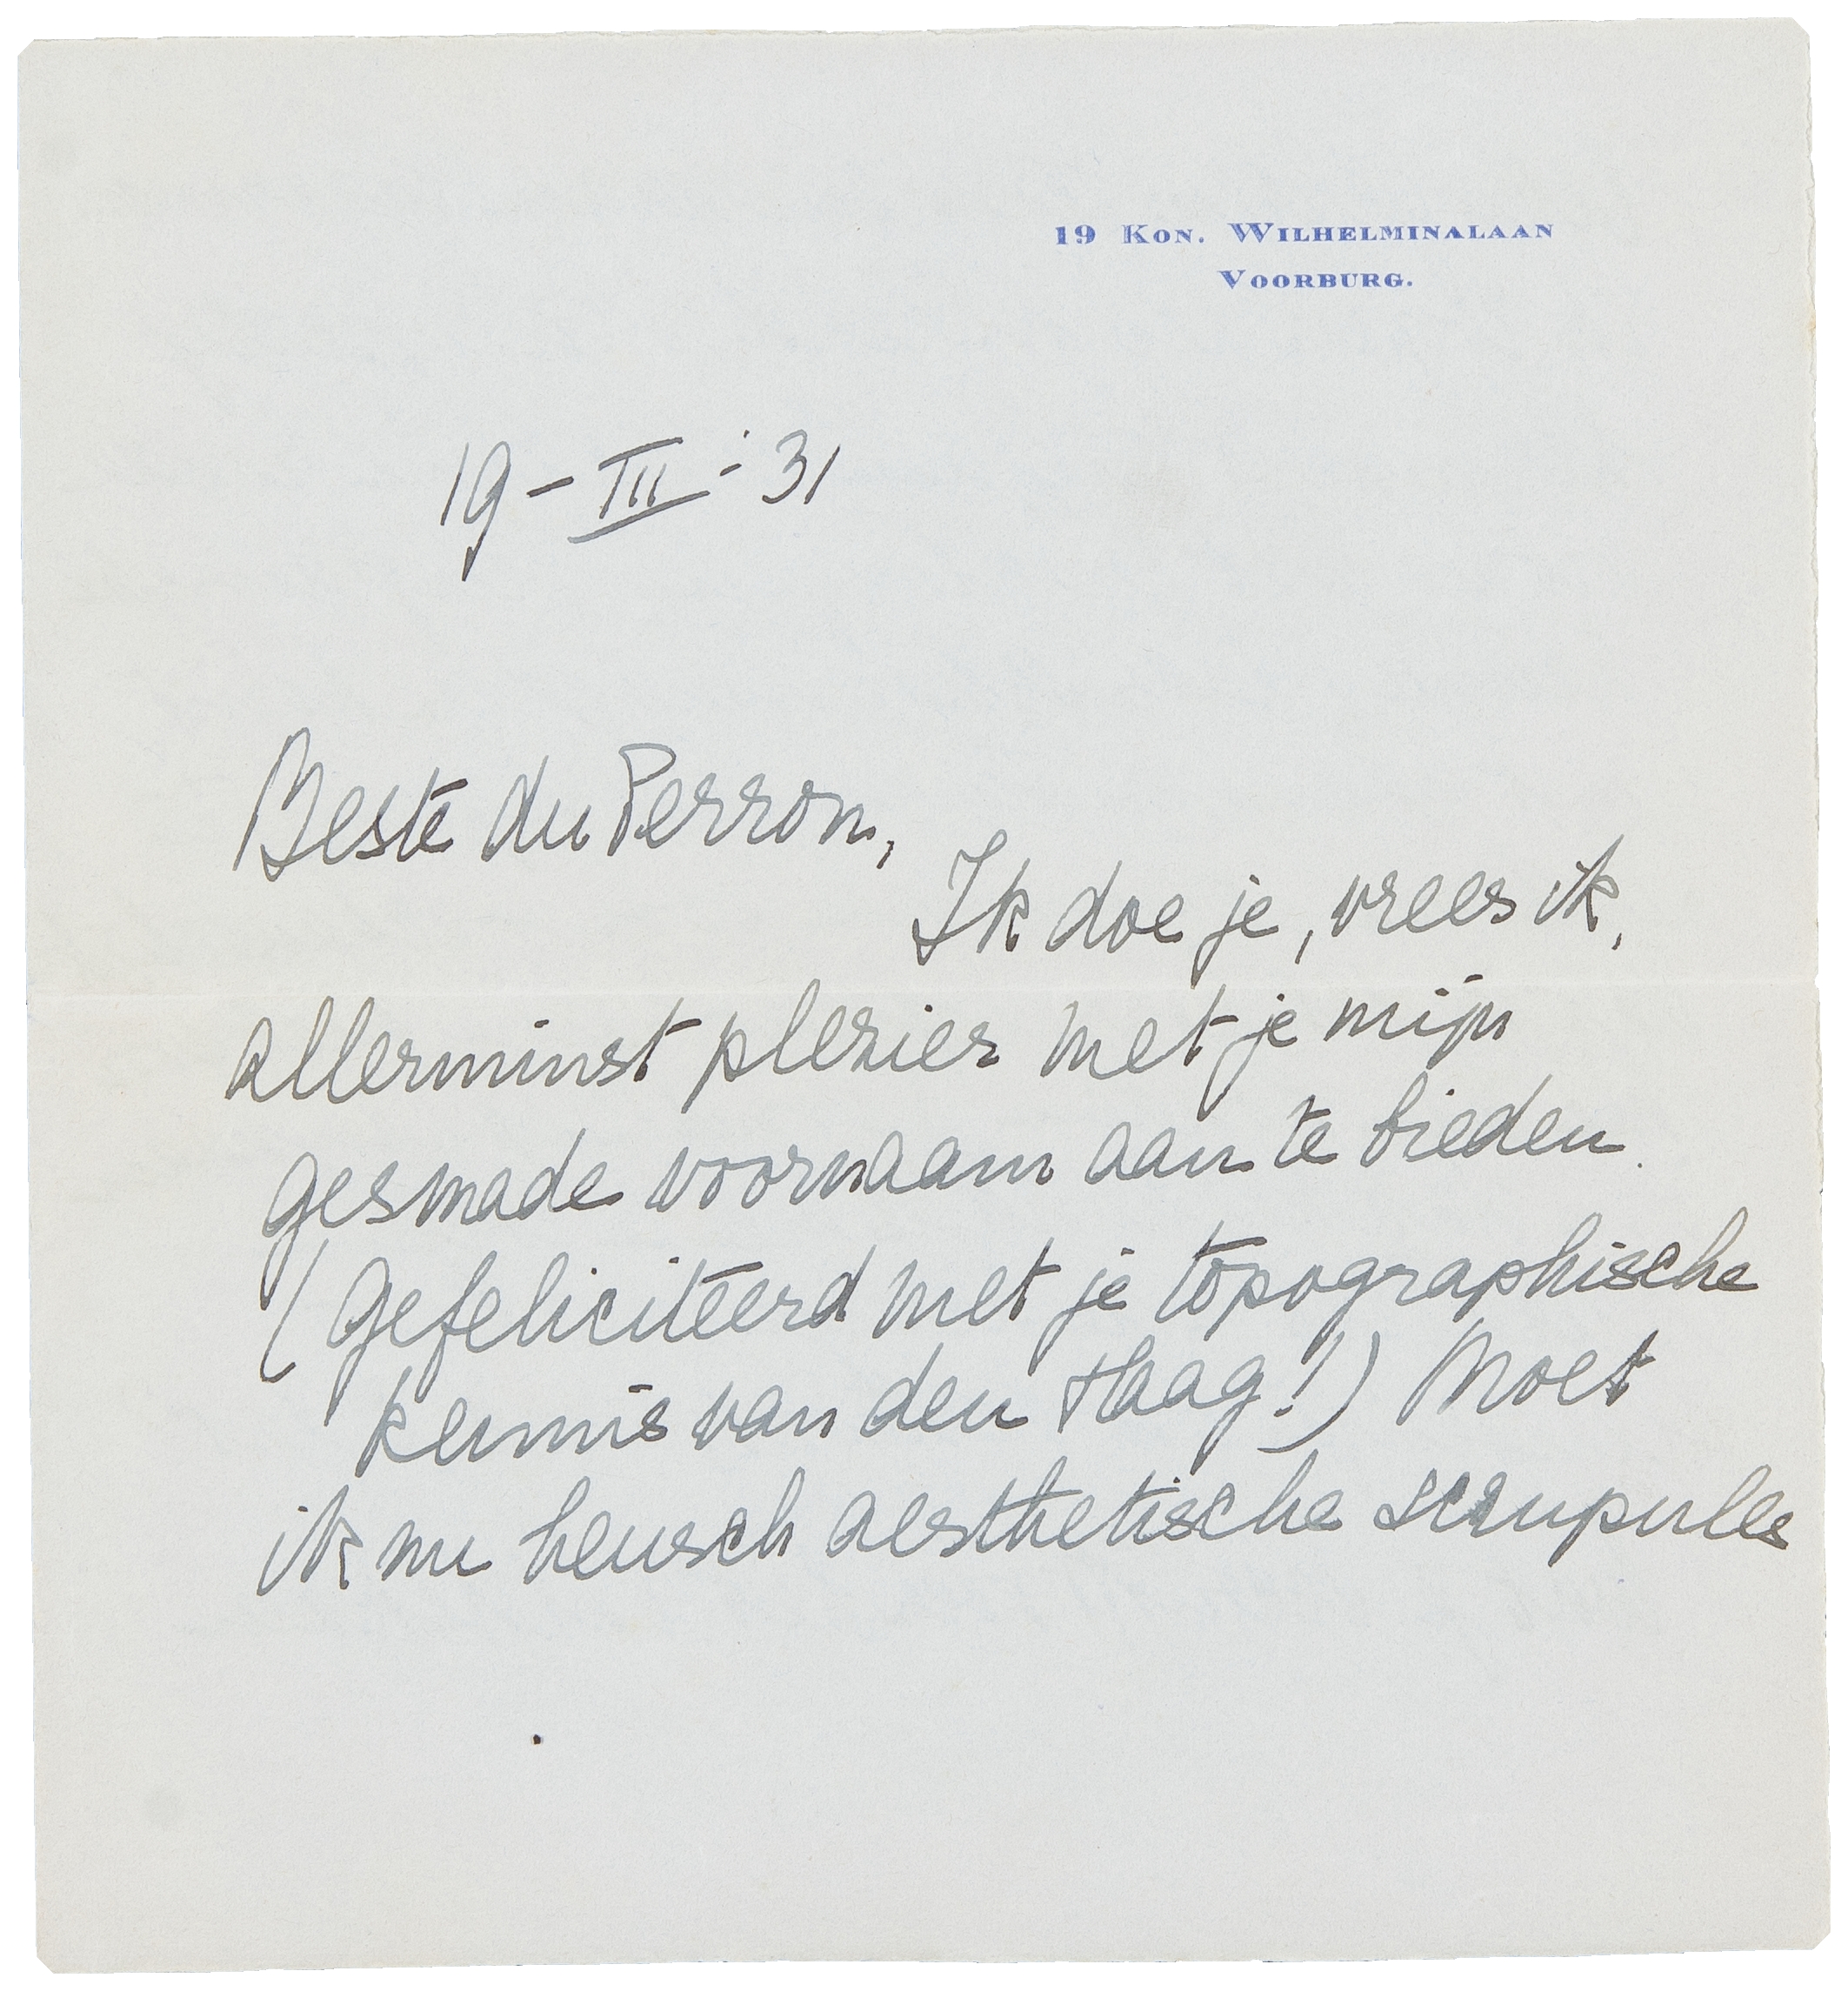 19 Kon. Wilhelminalaan
Voorburg.
19-III-'31
Beste du Perron,
Ik doe je, vrees ik,
allerminst plezier met je mijn
gesmade voornaam aan te bieden.
(Gefeliciteerd met je topographische
kennis van den Haag!) Moet
ik nu heusch aesthetische scrupules